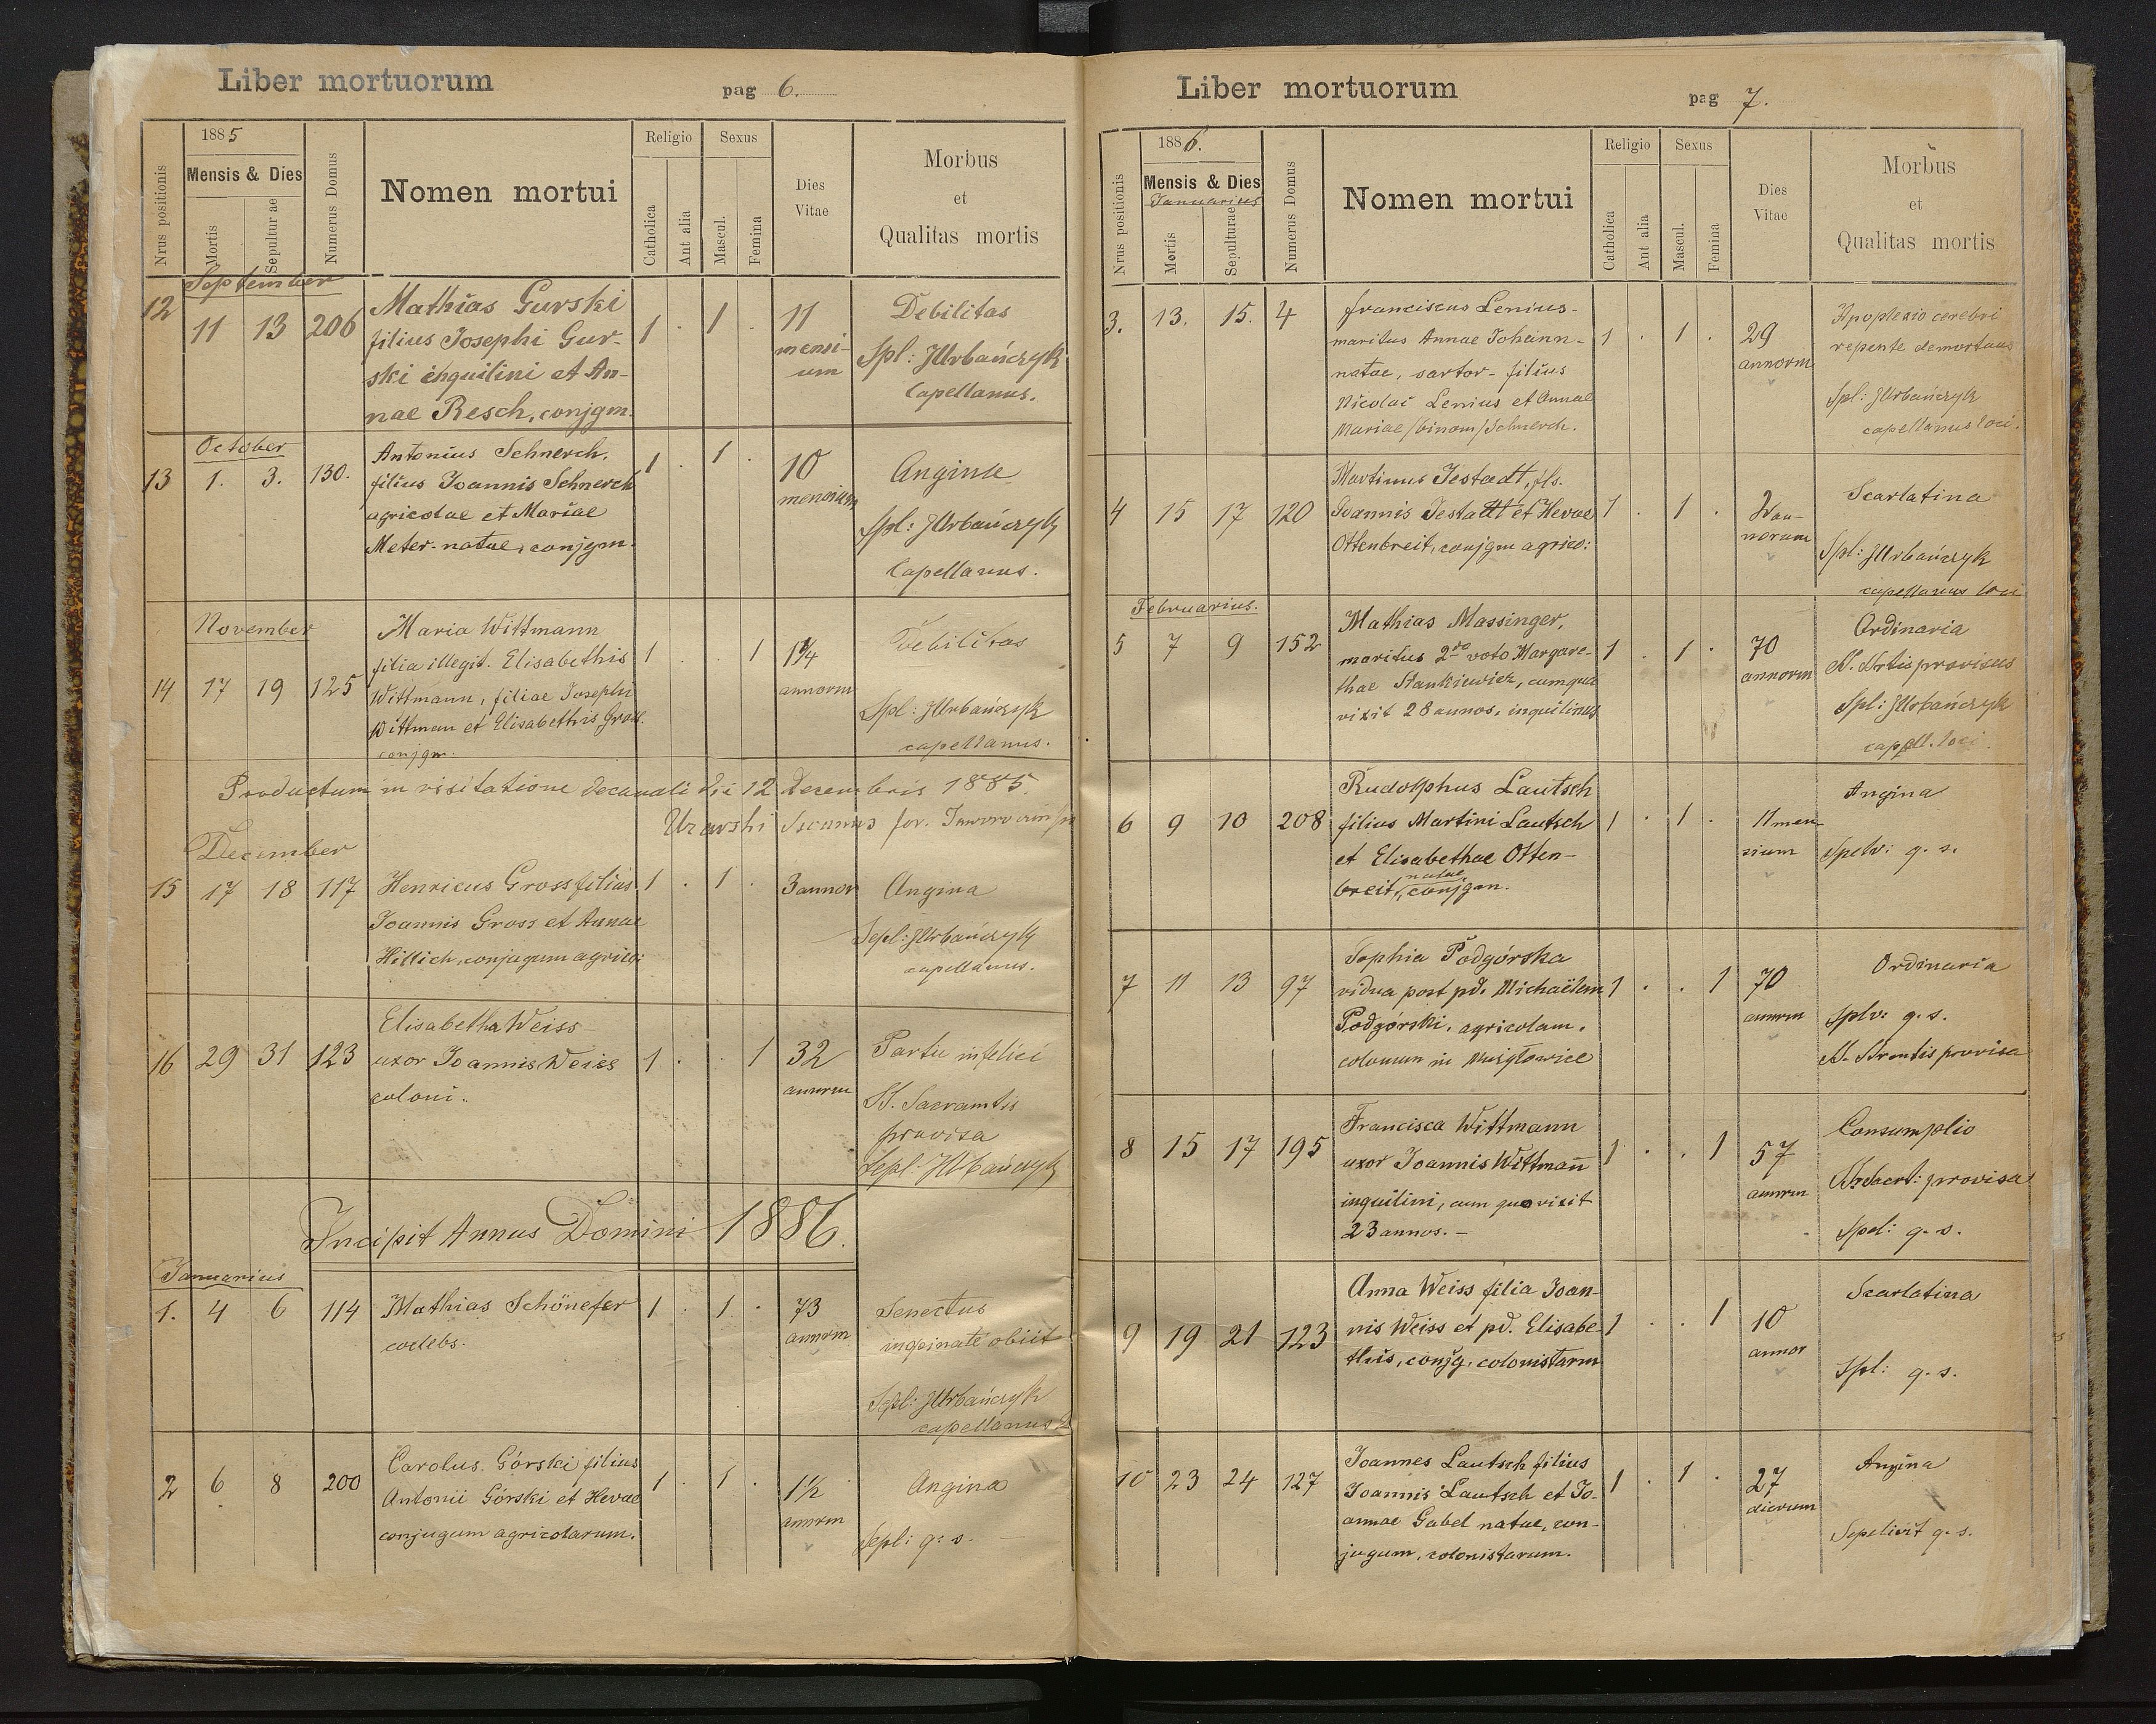 Liber mortuorum
pag 6.
1885
Mensis & Dies
Nrus positionis
Mortis
Sepulturae
Numerus Domus
Nomen mortui
Religio
Catholica
Aut alia
Sexus
Mascul.
Femina
Dies
Vitae
Morbus
et
Qualitas mortis
September
12 11 13 206 Mathias Gurski 1 . 1 . 11 Debilitas
filius Josephi Gur- mensi- Spl: JUrbańczyk
ski inquilini et An- um Capellanus.
nae Resch, conjgm.
October
13 1. 3. 130. Antonius Schnerch, 1 . 1 . 10 Anginae
filius Joannis Schnerch mensium
agricolae et Mariae Spl: JUrbańczyk
Meter-natae, conjgm. Capellanus.
November
14 17 19 125 Maria Wittmann 1 . . 1 1¼ Debilitas
filia illegit. Elisabethis annorm
Wittmann, filiae Josephi Spl: JUrbańczyk
Wittman et Elisabethis Gross. capellanus.
conjgm:
Productum in visitatione decanali die 12 Decembris 1885.
Decanus for.
December
15 17 18 117 Henricus Gross filius 1 . 1 . 3 annor Angina
Joannis Gross et Annae Sepl: JUrbańczyk
Hillich, conjugum agricol: capellanus.
16 29 31 123 Elisabetha Weiss 1 . . 1 32 Partu infelici
uxor Joannis Weiss annorm SS. Sacramtis
coloni. provisa
Sepl: JUrbańczyk
Incipit Annus Domini 1886.
Januarius
1. 4 6 114 Mathias Schönefer 1 . 1 . 73 Senectus
coelebs. annorm inopinate obiit
Sepl: JUrbańczyk
capellanus
2 6 8 200 Carolus Górski filius 1 . 1 . 1½ Angina
Antonii Górski et Hevae annorm
conjugum agricolarum. Sepl: q. s.
Liber mortuorum
pag 7.
1886.
Mensis & Dies
Januarius
Nrus positionis
Mortis
Sepulturae
Numerus Domus
Nomen mortui
Religio
Catholica
Aut alia
Sexus
Mascul.
Femina
Dies
Vitae
Morbus
et
Qualitas mortis
3. 13. 15. 4 Franciscus Lenius- 1 . 1 . 29 Apoplexio cerebri
maritus Annae Johann- annorm repente demortuus
natae, sartor- filius Spl: JUrbańczyk
Nicolai Lenius et Annae capellanus loci.
Mariae /binom/ Schnerch.
4 15 17 120 Martinus Jestadt, fls. 1 . 1 . 2 an- Scarlatina
Joannis Jestadt et Hevae norum Spl: JUrbańczyk
Ottenbreit, conjgm agrico: capellanus loci
Februarius.
5 7 9 152 Mathias Massinger, 1 . 1 . 70 Ordinaria
maritus 2do voto Margare- annorm provisus
thae Stankiewicz, cum qua Spl: JUrbańczyk
vixit 28 annos, inquilinus capell. loci.
6 9 10 208 Rudolphus Lautsch 1 . 1 . 11 men- Angina
filius Martini Lautsch sium Spelv: q. s.
et Elisabethae Otten-
breit, natae conjgm.
7 11 13 97 Sophia Podgórska 1 . . 1 70 Ordinaria
vidua post pd. Michaëlem annorm Splv: q. s.
Podgórski, agricolam, provisa
colonum in Mużyłowice
8 15 17 195 Francisca Wittmann 1 . . 1 57 Consumptio
uxor Joannis Wittmann annorm provisa
inquilini, cum quo vixit
23 annos.- Spel: q. s.
9 19 21 123 Anna Weiss filia Joan- 1 . . 1 10 Scarlatina
nis Weiss et pd. Elisabe- annor
this, conjg. colonistarm Spl: q. s.
10 23 24 127 Joannes Lautsch filius 1 . 1 . 27 Angina
Joannis Lautsch et Jo- dierum
annae Gabel natae, con- Sepelivit q. s.
jugum, colonistarum.